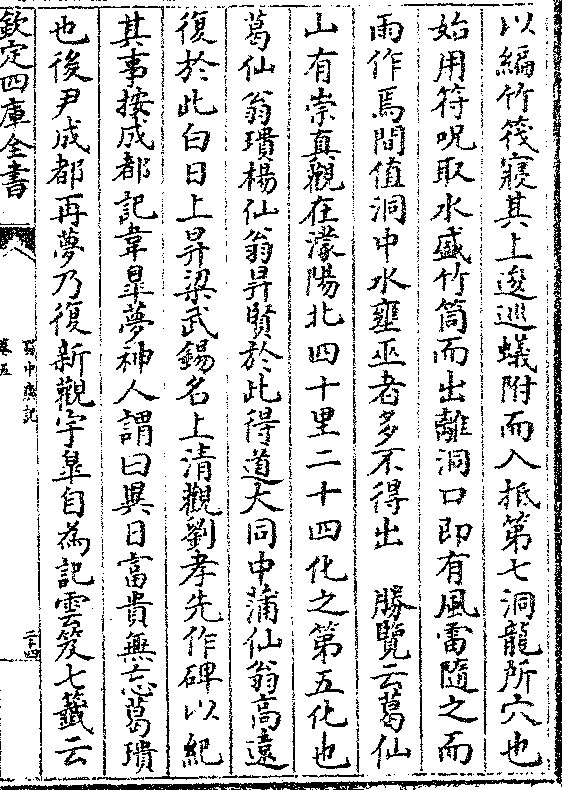 以縞竹筏寢其上逡巡蟻附而入抵第七洞龍所穴也
始用符呪取水盛竹筒而出離洞口即有風雷隨之而
雨作焉間值洞中水壅巫者多不得出　勝覽云葛仙
山有崇真觀在濛陽北四十里二十四化之第五化也
葛仙翁璝楊仙翁昇賢於此得道大同中蒲仙翁高遠
復於此白日上昇梁武錫名上清觀劉孝先作碑以紀
其事按成都記韋臯夢神人謂曰異日富貴無忘葛璝
也後尹成都再夢乃復新觀宇臯自為記雲笈七籤云
欽定四庫全書
蜀中廣記
卷五
二十四